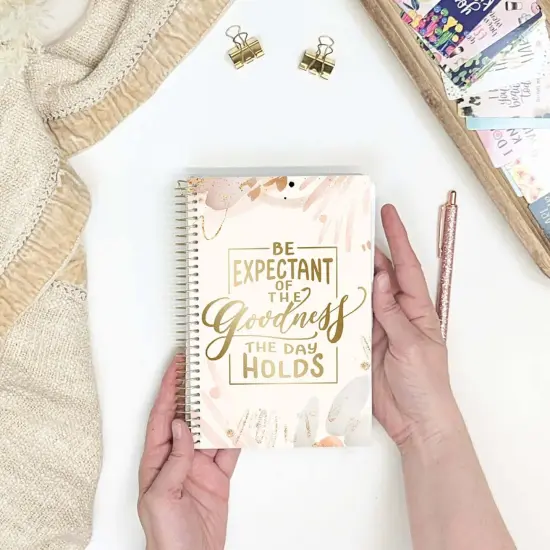 BE
EXPECTANT
OF
THE
Goodness
THE DAY
HOLDS